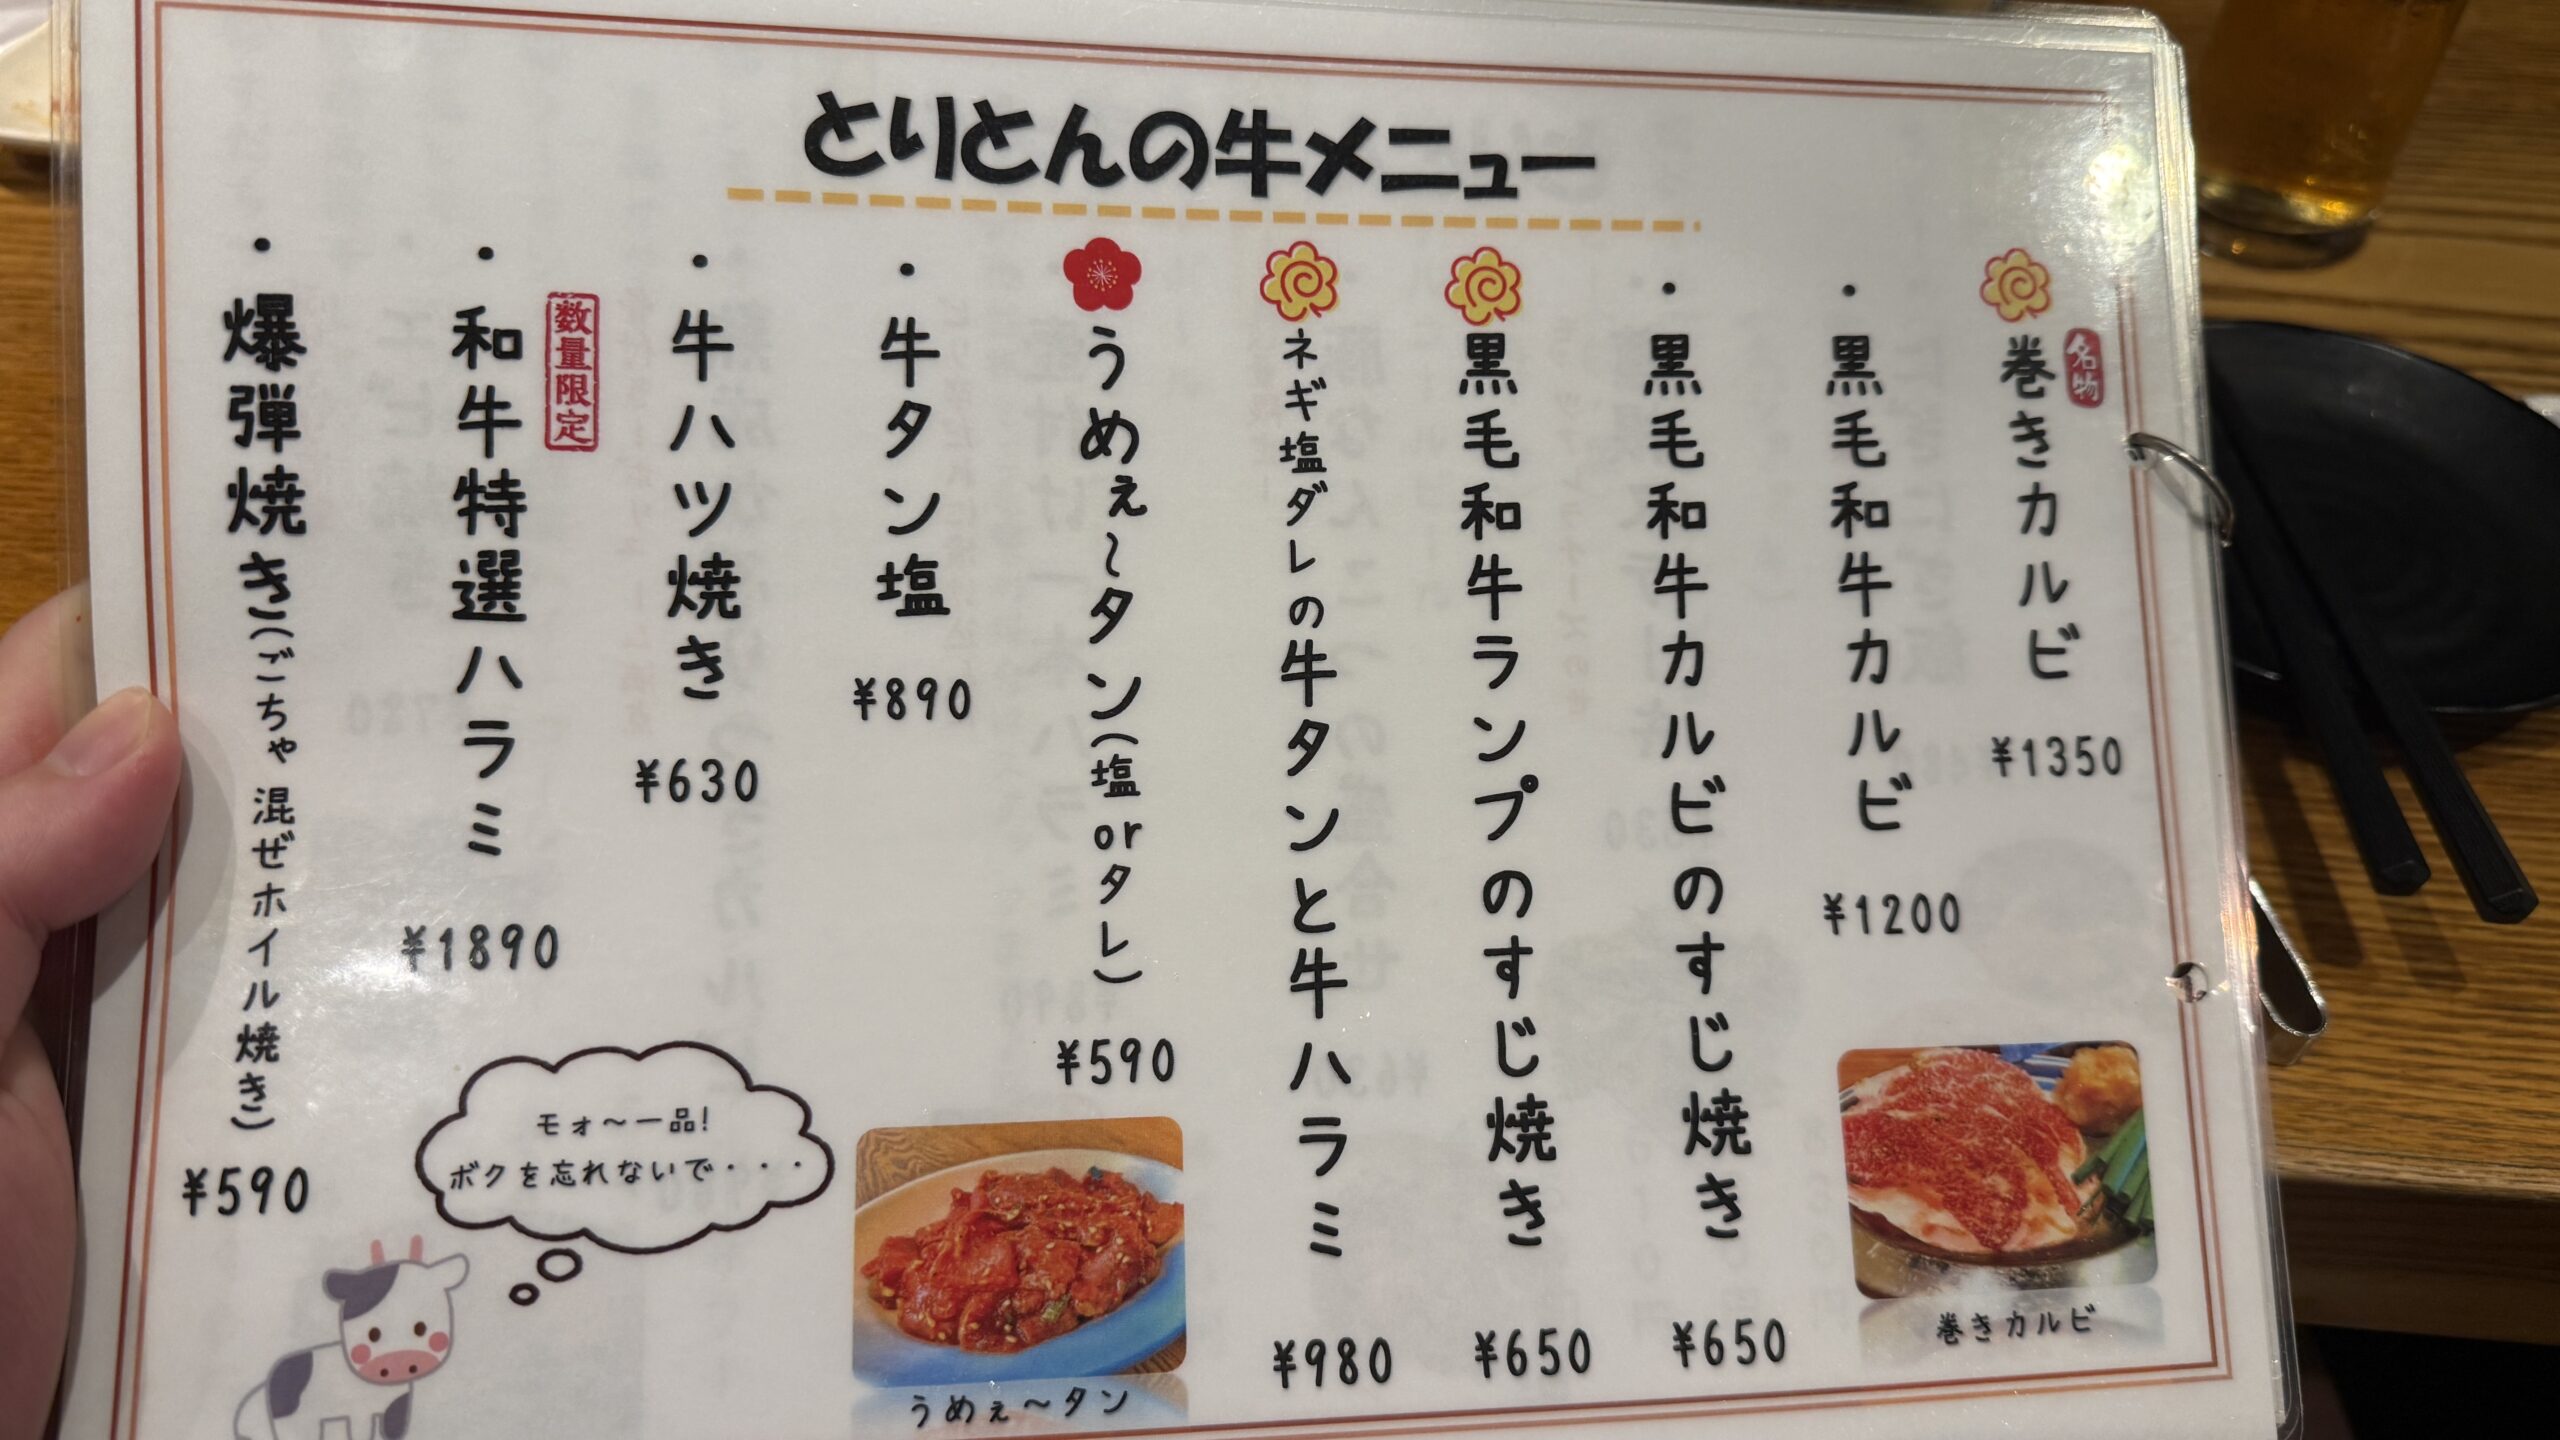 とりとんの牛メニュー
名物
巻きカルビ ¥1350
・黒毛和牛カルビ ¥1200
・黒毛和牛カルビのすじ焼き ¥650
黒毛和牛ランプのすじ焼き ¥650
ネギ塩ダレの牛タンと牛ハラミ ¥980
うめぇ〜タン(塩orタレ) ¥590
・牛タン塩 ¥890
・牛ハツ焼き ¥630
数量限定
・和牛特選ハラミ ¥1890
・爆弾焼き(ごちゃ混ぜホイル焼き) ¥590
巻きカルビ
うめぇ〜タン
モォ〜一品!
ボクを忘れないで・・・